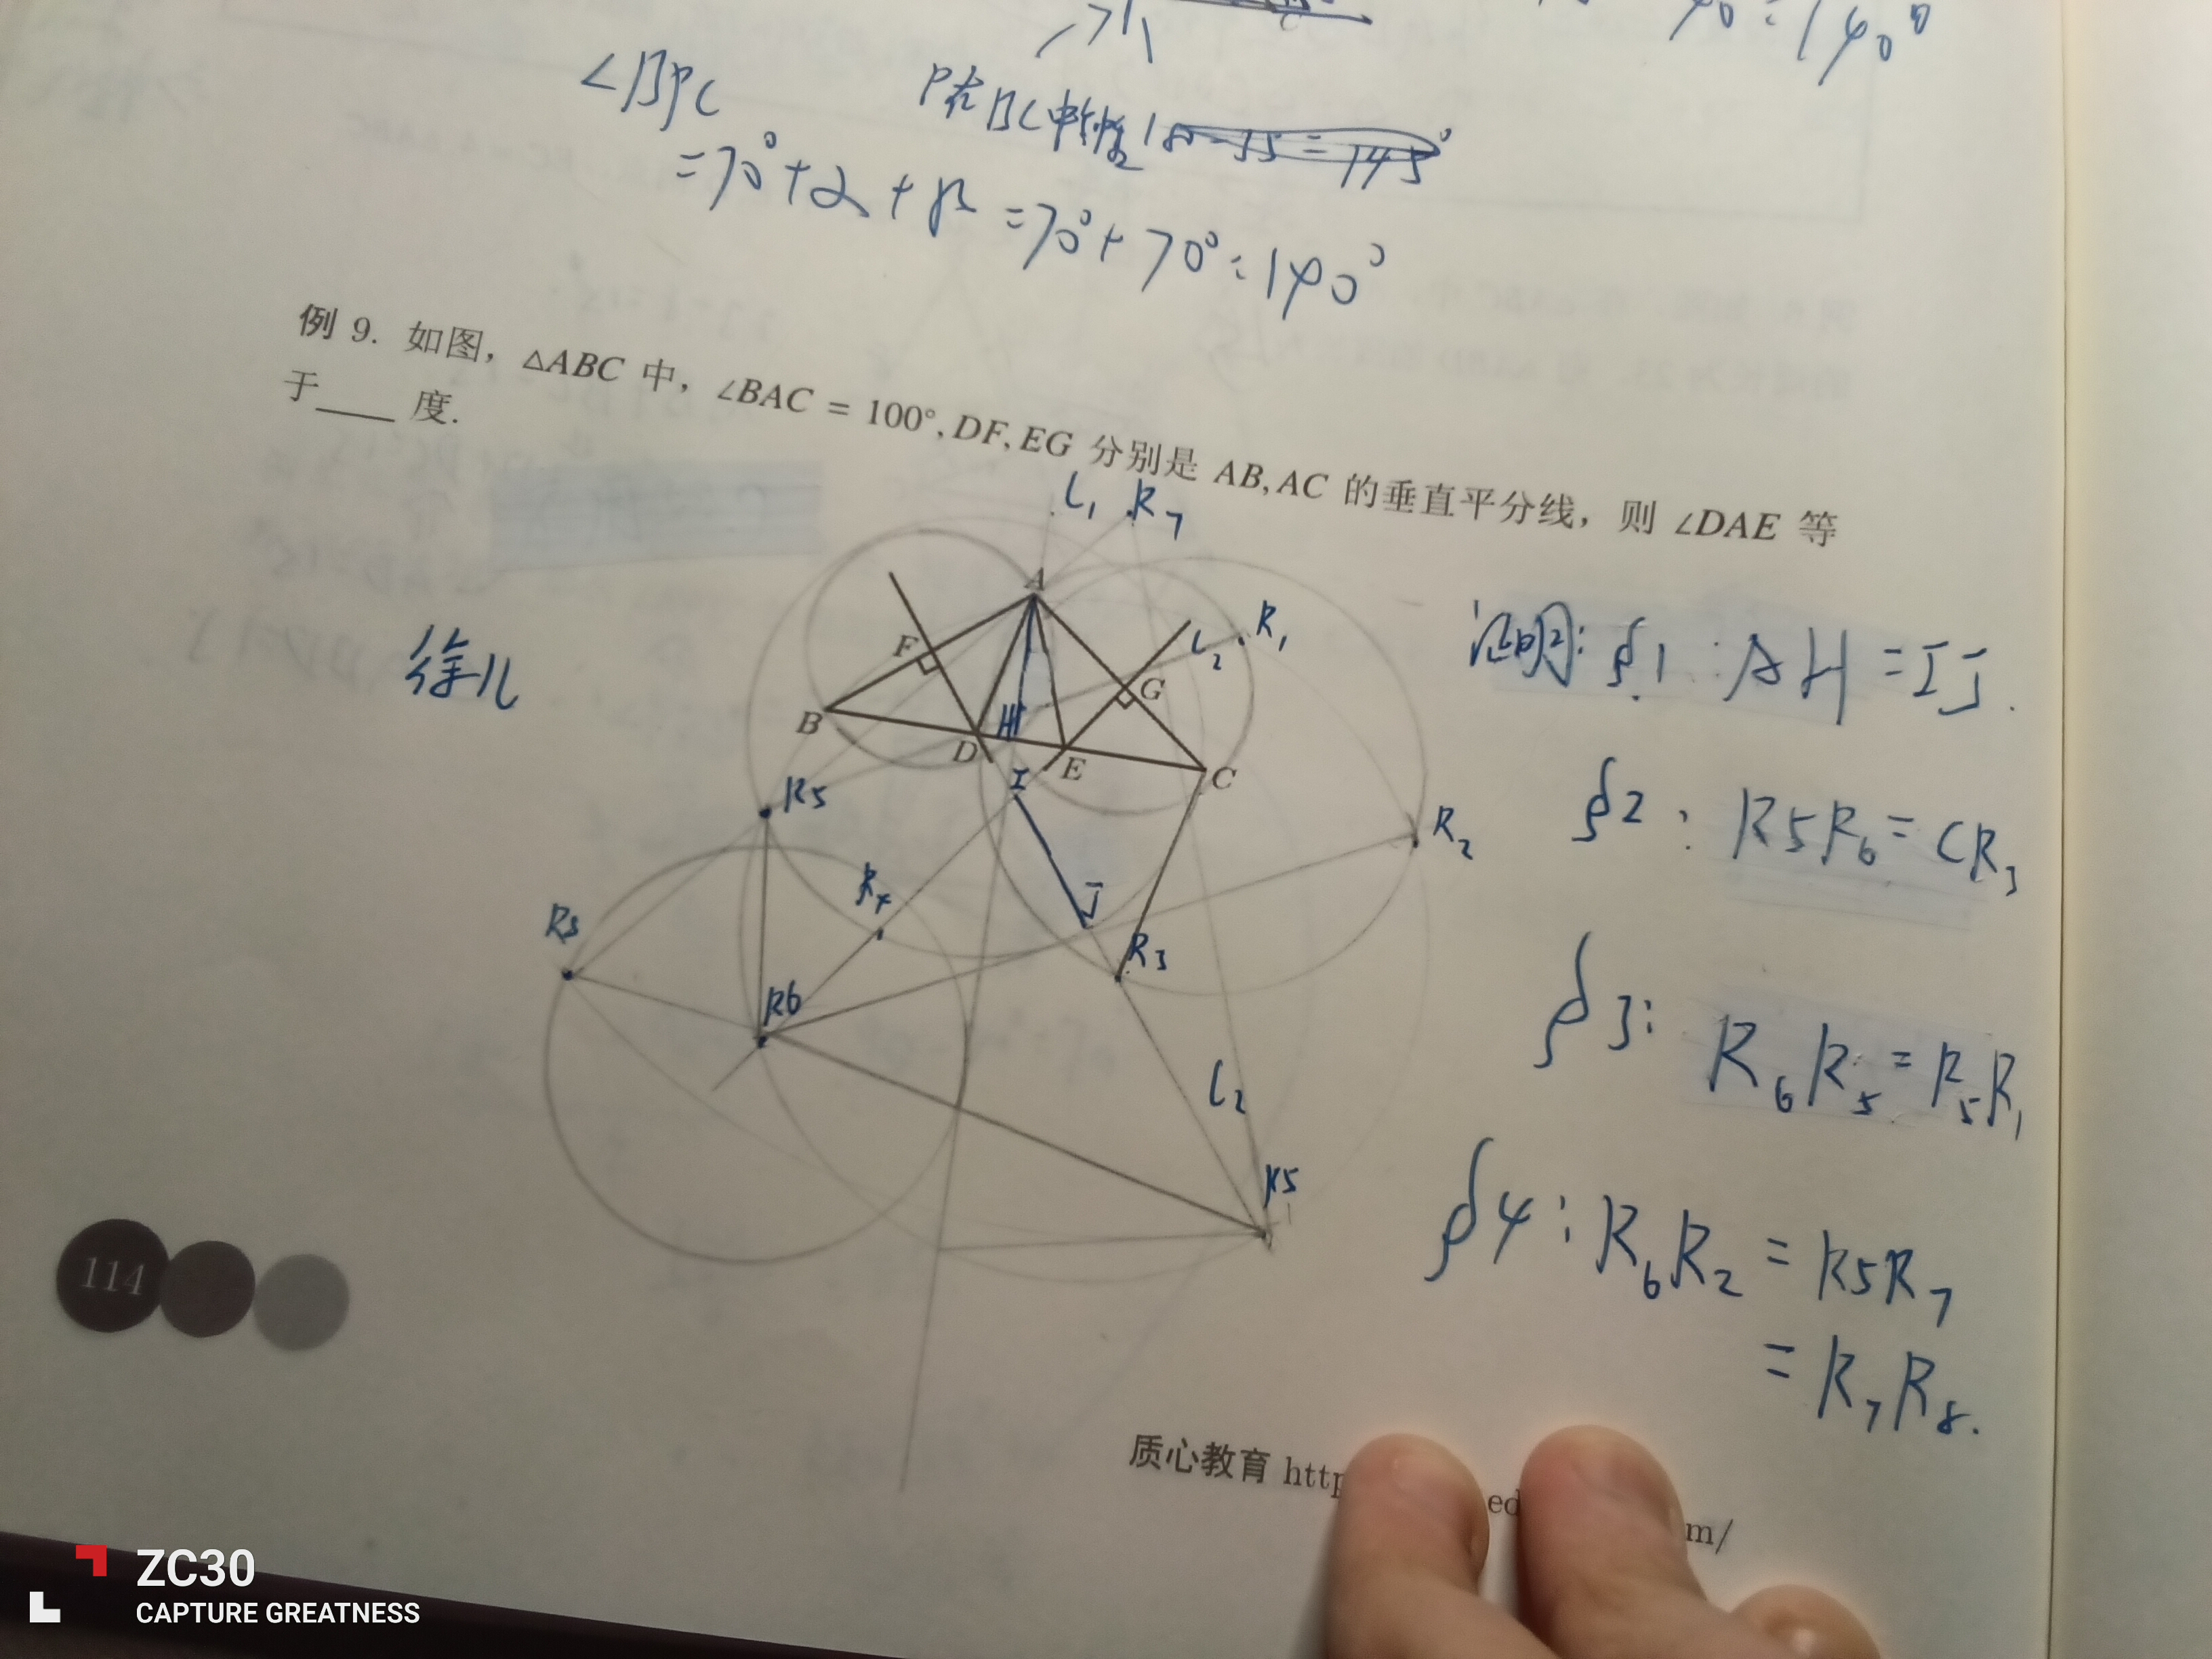 C
70 = 140°
∠BPC
= 70° + α + β = 70° + 70° = 140°
例 9. 如图, △ABC 中, ∠BAC = 100°, DF, EG 分别是 AB, AC 的垂直平分线, 则 ∠DAE 等
于____ 度.
L₁ R₇
A
R₁
L₂
F
G
B
D
H
E
C
I
R5
R₂
R₄
J
R₃
R8
R6
L₂
R5
证明: ∮1: AH = IJ.
∮2: R5R₆ = CR₃
∮3: R₆R₅ = R₅R₁
∮4: R₆R₂ = R5R₇
= R₇R₈.
114
质心教育 http
ed
m/
ZC30
CAPTURE GREATNESS